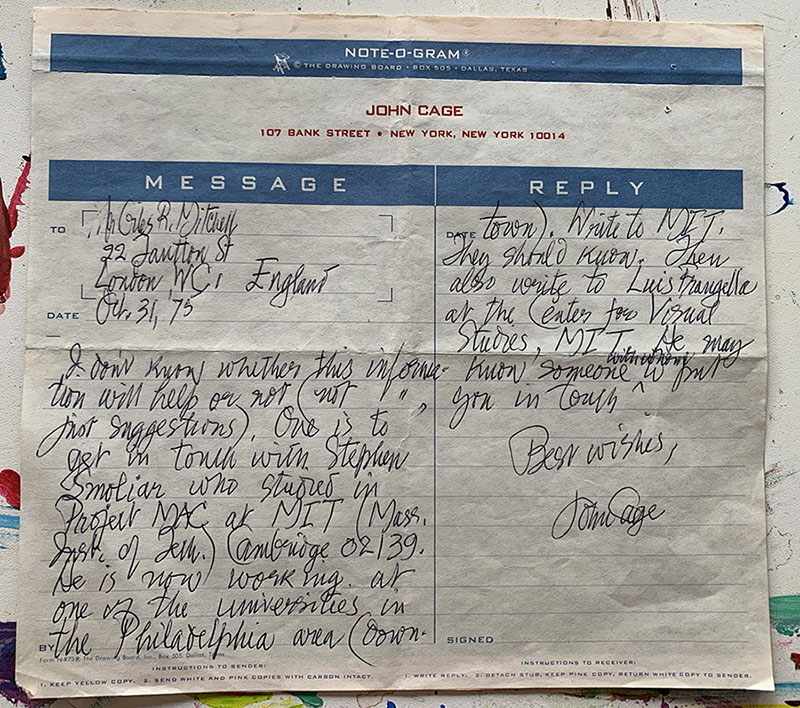 NOTE-O-GRAM®
© THE DRAWING BOARD • BOX 505 • DALLAS, TEXAS
JOHN CAGE
107 BANK STREET • NEW YORK, NEW YORK 10014
MESSAGE
TO
Mr Giles R. Mitchell
22 St
London WC1 England
DATE
Oct. 31, 75
I don't know whether this informa-
tion will help or not (not " ",
just suggestions). One is to
get in touch with Stephen
Smoliar who studied in
Project MAC at MIT (Mass.
Inst. of Tech.) Cambridge 02139.
He is now working at
one of the universities in
the Philadelphia area (down-
BY
Form N-R73® The Drawing Board, Inc., Box 505, Dallas, Texas
INSTRUCTIONS TO SENDER:
1. KEEP YELLOW COPY. 2. SEND WHITE AND PINK COPIES WITH CARBON INTACT.
REPLY
DATE
town). Write to MIT.
They should know. Then
also write to Luis Frangella
at the Center for Visual
Studies, MIT. He may
know someone with whom to put
you in touch ^
Best wishes,
John Cage
SIGNED
INSTRUCTIONS TO RECEIVER:
1. WRITE REPLY. 2. DETACH STUB, KEEP PINK COPY, RETURN WHITE COPY TO SENDER.